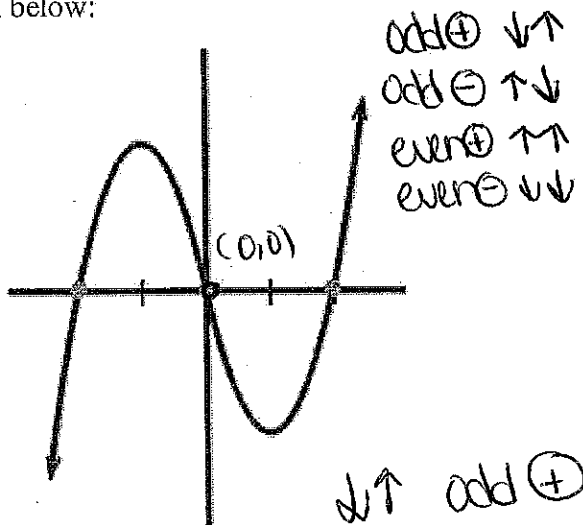 below:
odd ⊕ ↓↑
odd ⊖ ↑↓
even ⊕ ↑↑
even ⊖ ↓↓
(0,0)
↓↑ odd ⊕